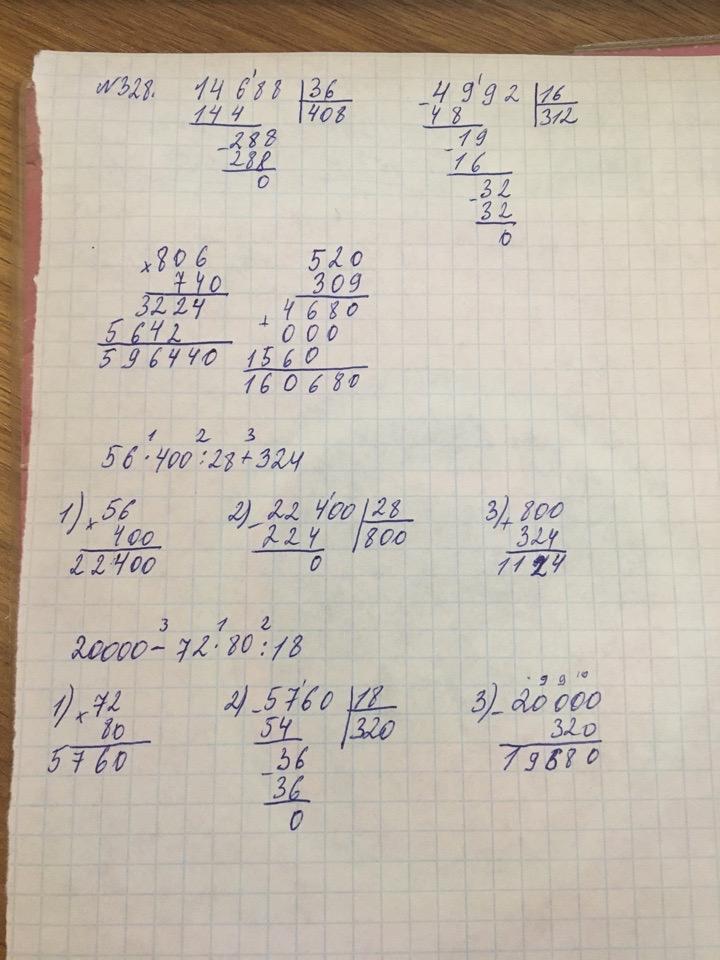 №328. 14688 |36   - 4992 |16
144 |408   48 |312
- 288   - 19
288   16
0   - 32
32
0
× 806   520
740   309
3224   4680
5642   + 000
596440   1560
160680
1 2 3
56 · 400 : 28 + 324
1) × 56   2) - 22400 |28   3) + 800
400   224 |800   324
22400   0   1124
3 1 2
20000 - 72 · 80 : 18
9 9 10
1) × 72   2) - 5760 |18   3) - 20000
80   54 |320   320
5760   - 36   19680
36
0